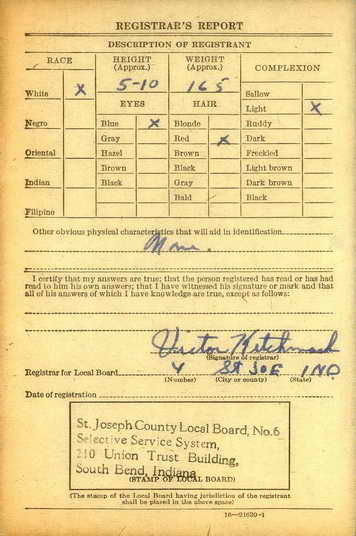 REGISTRAR'S REPORT
DESCRIPTION OF REGISTRANT
RACE
HEIGHT (Approx.)
WEIGHT (Approx.)
COMPLEXION
5-10
165
White X
Sallow
EYES
HAIR
Light X
Negro
Blue X
Blonde
Ruddy
Gray
Red X
Dark
Oriental
Hazel
Brown
Freckled
Brown
Black
Light brown
Indian
Black
Gray
Dark brown
Bald
Black
Filipino
Other obvious physical characteristics that will aid in identification
None.
I certify that my answers are true; that the person registered has read or has had
read to him his own answers; that I have witnessed his signature or mark and that
all of his answers of which I have knowledge are true, except as follows:
Victor
(Signature of registrar)
Registrar for Local Board 4 St JOE IND
(Number) (City or county) (State)
Date of registration
St. Joseph County Local Board, No. 6
Selective Service System,
210 Union Trust Building,
South Bend, Indiana
(STAMP OF LOCAL BOARD)
(The stamp of the Local Board having jurisdiction of the registrant
shall be placed in the above space)
16—21630-1